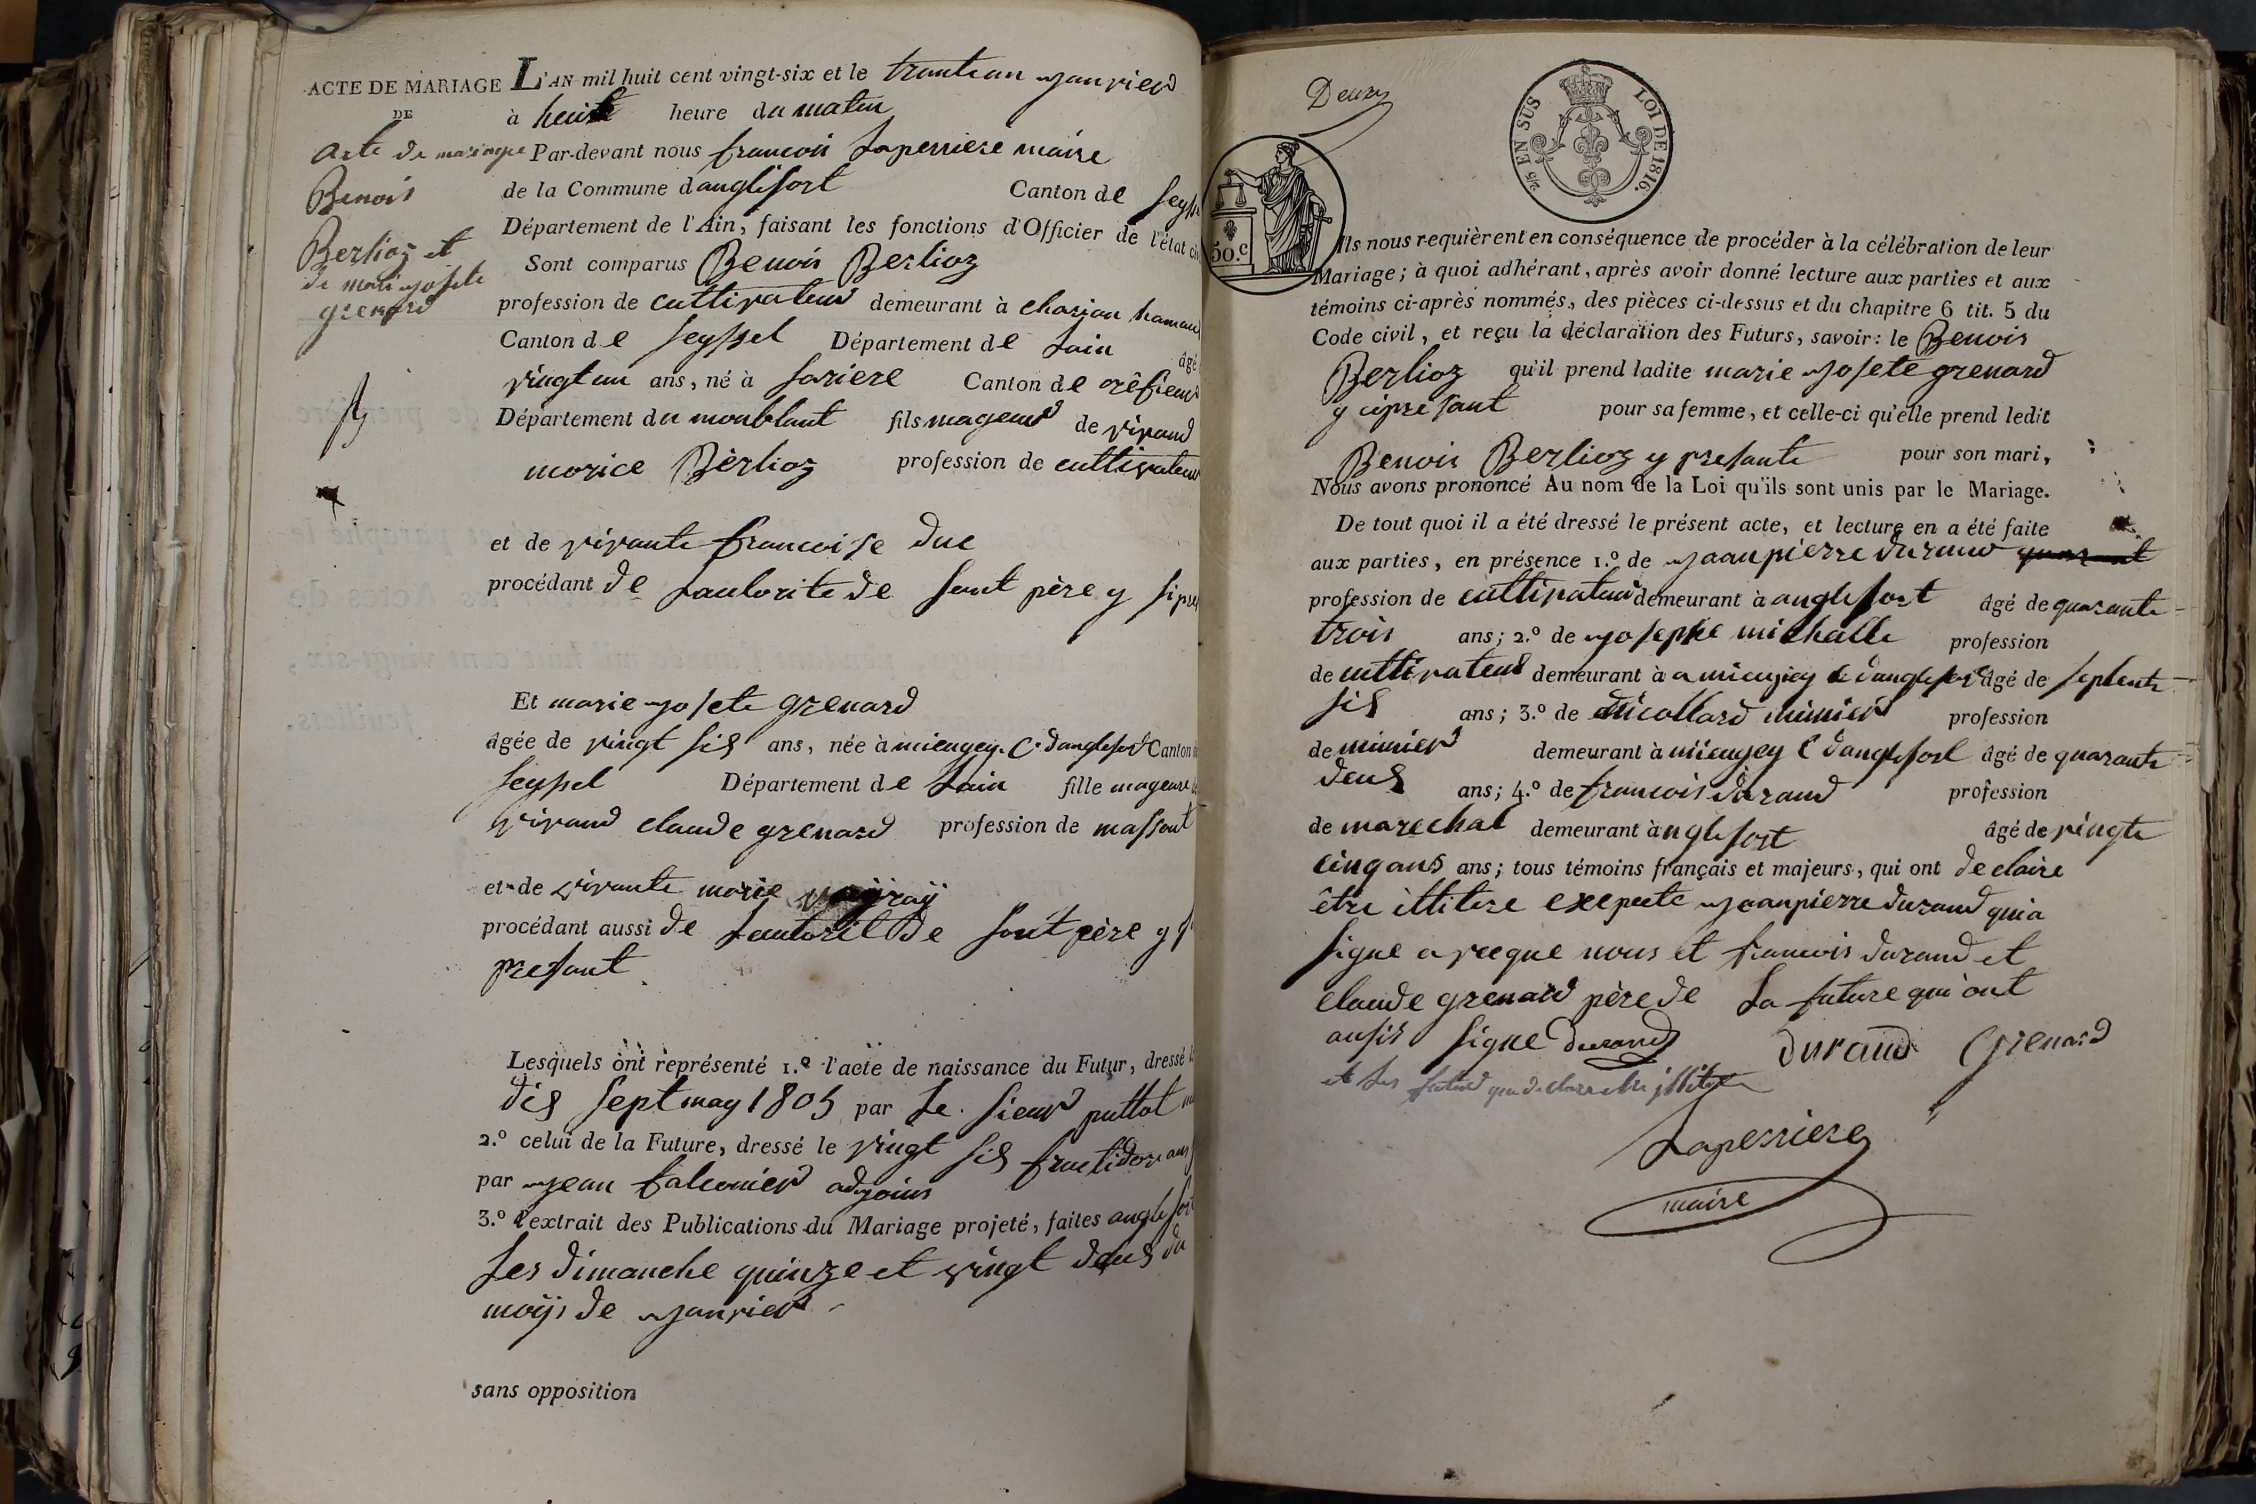 ACTE DE MARIAGE
DE
acte de mariage
Benois
Berlioz et
de mari josete
grenard
L'AN mil huit cent vingt-six et le tranteun janvier
à heuit heure du matin
Par-devant nous francois Laperriere maire
de la Commune danglefort Canton de Seyss
Département de l'Ain, faisant les fonctions d'Officier de l'état ci
Sont comparus Benois Berlioz
profession de cultivateur demeurant à hamau
Canton de Seyssel Département de Lain âgé
vingt un ans, né à Canton de
Département du monblant fils mageur de vivand
morice Bèrlioz profession de cultivateur
et de vivante francoise Duc
procédant de Lautorite de sont père y si pre
Et marie josete grenard
âgée de vingt sis ans, née à mieugey C. danglefort Canton
Seyssel Département de Lain fille mageure
vivand claude grenard profession de massont
et de vivante marie
procédant aussi de Lautorit De sont père y s
presant
Lesquels ont représenté 1.º l'acte de naissance du Futur, dressé l
dis sept may 1805 par Le sieur puttot
2.º celui de la Future, dressé le vingt sis fructidor ans
par jean falconier adjoins
3.º l'extrait des Publications du Mariage projeté, faites anglefort
Les dimanche quinze et vingt deus du
moijs de janvier
sans opposition
2/5 EN SUS
LOI DE 1816.
50.c
Ils nous requièrent en conséquence de procéder à la célébration de leur
Mariage; à quoi adhérant, après avoir donné lecture aux parties et aux
témoins ci-après nommés, des pièces ci-dessus et du chapitre 6 tit. 5 du
Code civil, et reçu la déclaration des Futurs, savoir: le Benois
Berlioz qu'il prend ladite marie josete grenard
y cipresant pour sa femme, et celle-ci qu'elle prend ledit
Benois Berlioz y presante pour son mari,
Nous avons prononcé Au nom de la Loi qu'ils sont unis par le Mariage.
De tout quoi il a été dressé le présent acte, et lecture en a été faite
aux parties, en présence 1.º de jaanpierre durand
profession de cultivateur demeurant à anglefort âgé de quarante
trois ans; 2.º de josephe michalle profession
de cultivateur demeurant à a mieugiey danglefort âgé de septente
sis ans; 3.º de nicollard munier profession
de munier demeurant à mieugey C danglefort âgé de quarante
deus ans; 4.º de francois durand profession
de marechal demeurant à nglefort âgé de vingte
cinq ans ans; tous témoins français et majeurs, qui ont declaire
être ittitere exepeete jeanpierre durand qui a
signe avecque nous et francois durand et
claude grenard père de La future qui ont
ausis signe durand durand Grenard
et Les futurs
Laperriere
maire